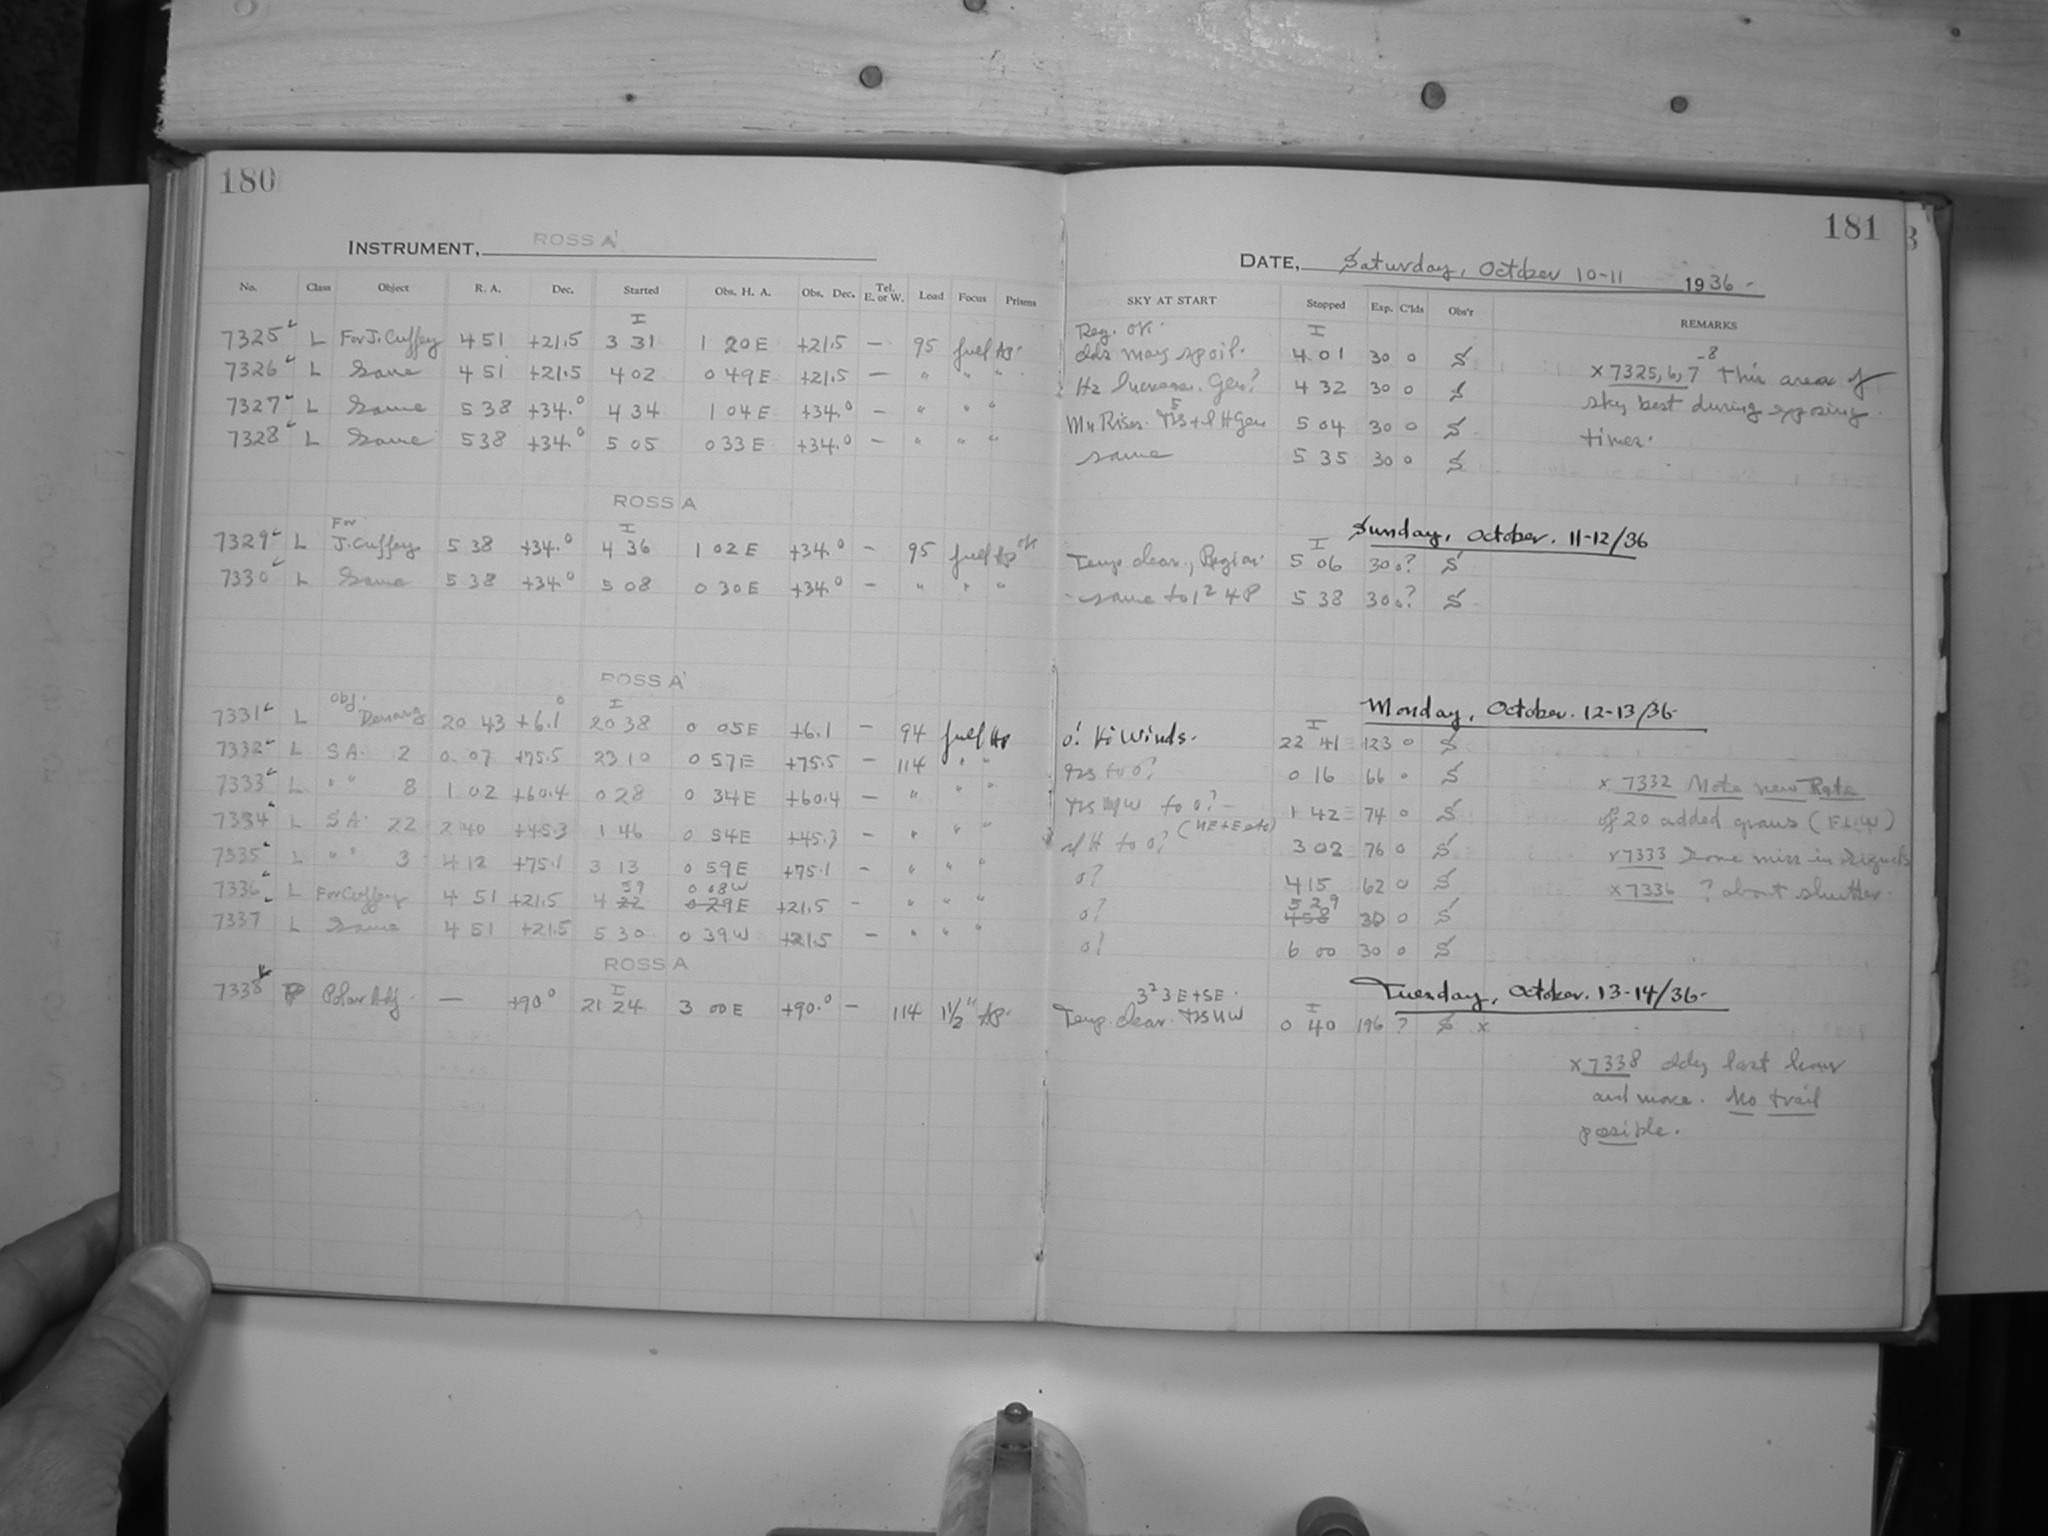 180
INSTRUMENT, ROSS A
No. Class Object R. A. Dec. Started Obs. H. A. Obs. Dec. Tel. E. or W. Load Focus Prisms
I
7325 L For J. Cuffey 4 51 +21.5 3 31 1 20 E +21.5 — 95 full Ap.
7326 L Same 4 51 +21.5 4 02 0 49 E +21.5 — " " "
7327 L Same 5 38 +34.0 4 34 1 04 E +34.0 — " " "
7328 L Same 5 38 +34.0 5 05 0 33 E +34.0 — " " "
ROSS A
For I
7329 L J. Cuffey 5 38 +34.0 4 36 1 02 E +34.0 — 95 full Ap
7330 L Same 5 38 +34.0 5 08 0 30 E +34.0 — " " "
ROSS A
Obj. I
7331 L 20 43 +6.1 20 38 0 05 E +6.1 — 94 full Ap
7332 L S A. 12 0 07 +75.5 23 10 0 57 E +75.5 — 114 " "
7333 L " " 8 1 02 +60.4 0 28 0 34 E +60.4 — " " "
7334 L S A. 22 2 40 +45.3 1 46 0 54 E +45.3 — " " "
7335 L " " 3 4 12 +75.1 3 13 0 59 E +75.1 — " " "
59 0 08 W
7336 L For Cuffey 4 51 +21.5 4 22 0 29 E +21.5 — " " "
7337 L Same 4 51 +21.5 5 30 0 39 W +21.5 — " " "
ROSS A
I
7338 P Polar Adj. — +90° 21 24 3 00 E +90.° — 114 1½" Ap.
181
DATE, Saturday, October 10-11 1936.
SKY AT START Stopped Exp. C'lds Obs'r REMARKS
Reg. OK. I
may spoil. 4 01 30 0 S
Hz Increase. Gen? 4 32 30 0 S
Mn Rises. 5 04 30 0 S
same 5 35 30 0 S
-8
x 7325, 6, 7 This area of
sky best during exposing
times.
Sunday, October. 11-12/36
I
Temp clear, Region. 5 06 30 0? S
same to 1² 4 P 5 38 30 0? S
Monday, October. 12-13/36.
I
0! Hi Winds. 22 41 123 0 S
to 0? 0 16 66 0 S
NW to 0? — 1 42 74 0 S
(NE+E etc)
H to 0? 3 02 76 0 S
0? 4 15 62 0 S
5 29
0? 4 58 30 0 S
0? 6 00 30 0 S
x 7332 Note new Rate
of 20 added grams (F.L.W)
x 7333 Some miss in
x 7336 ? about shutter.
Tuesday, October. 13-14/36.
3² 3 E+SE. I
Temp. clear. NW 0 40 196 ? S x
x 7338 cldy last hour
and more. No trail
posible.